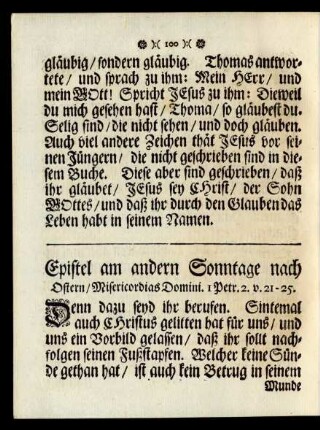 ❁ )( 100 )( ❁
gläubig / sondern gläubig. Thomas antwor-
tete / und sprach zu ihm: Mein HErr / und
mein GOtt! Spricht JEsus zu ihm: Dieweil
du mich gesehen hast / Thoma / so gläubest du.
Selig sind / die nicht sehen / und doch glauben.
Auch viel andere Zeichen thät JEsus vor sei-
nen Jüngern / die nicht geschrieben sind in die-
sem Buche. Diese aber sind geschrieben / daß
ihr gläubet / JEsus sey CHrist / der Sohn
GOttes / und daß ihr durch den Glauben das
Leben habt in seinem Namen.
Epistel am andern Sonntage nach
Ostern / Misericordias Domini. 1 Petr. 2. v. 21-25.
Denn dazu seyd ihr berufen. Sintemal
auch CHristus gelitten hat für uns / und
uns ein Vorbild gelassen / daß ihr sollt nach-
folgen seinen Fußstapfen. Welcher keine Sün-
de gethan hat / ist auch kein Betrug in seinem
Munde